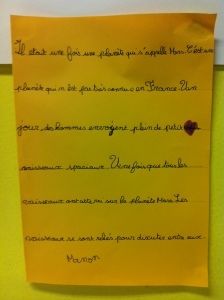 Il était une fois une planète qui s'appelle Mars. C'est une
planète qui n'est pas très connue en France. Un
jour, des hommes envoyent plein de petit
vaisseaux spaciaux. Une fois que tous les
vaisseaux ont atterri sur la planète Mars. Les
vaisseaux se sont reliés pour discuter entre eux.
Manon